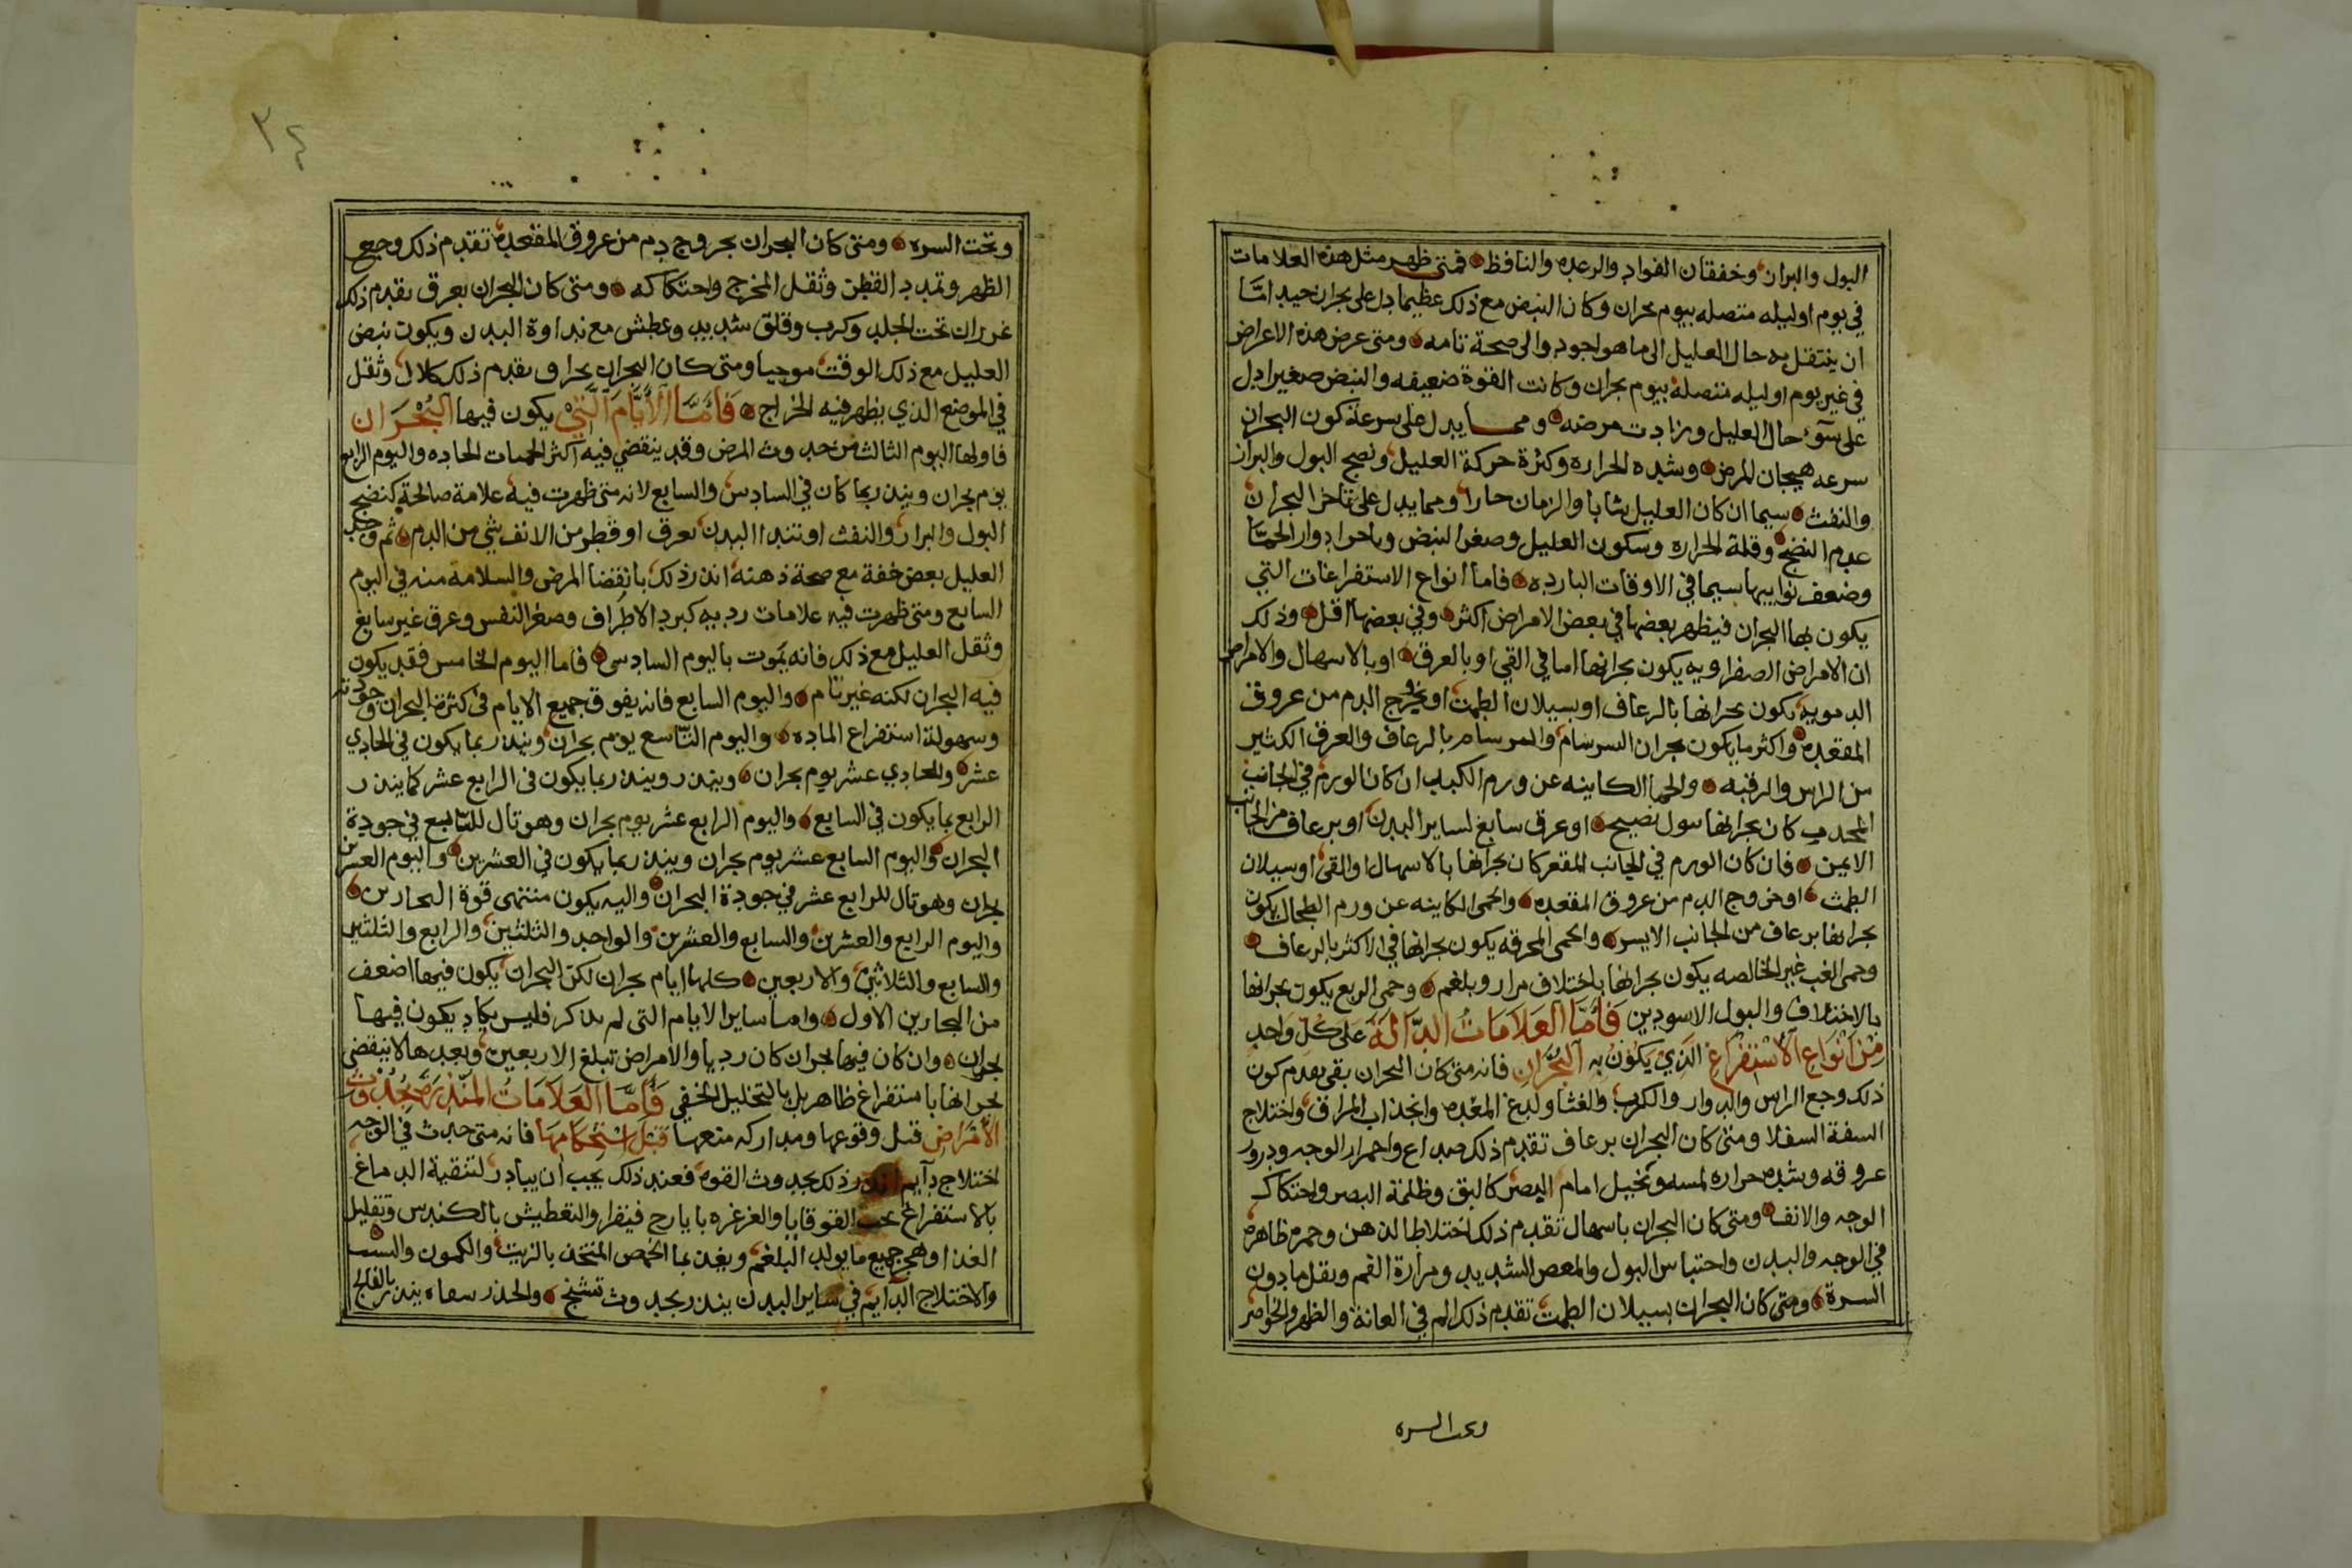 البول والبران وخفقان الفواد والرعده والنافظ فمتى ظهر مثل هذه العلامات
في يوم اوليله متصله بيوم بحران وكان النبض مع ذلك عظيما دل على بحران جيد امّا
ان ينتقل به حال العليل الى ما هو اجود والى صحة تامه ومتى عرض هذه الاعراض
في غير يوم اوليله متصلة بيوم بحران وكانت القوة ضعيفه والنبض صغيرا دل
على سوٓء حال العليل وزادت مرضه ومما يدل على سرعة كون البحران
سرعه هيجان المرض وشده الحراره وكثرة حركة العليل ونضج البول والبراز
والنفث سيما ان كان العليل شابا والزمان حارا ومما يدل على تاخر البحران
عدم النضج وقلة الحراره وسكون العليل وصغر النبض وتاخر ادوار الحمّا
وضعف نوايبها سيما في الاوقات البارده فاما انواع الاستفراغات التي
يكون بها البحران فيظهر بعضها في بعض الامراض اكثر وفي بعضها اقل وذلك
ان الامراض الصفراويه يكون بحرانها اما في القي او بالعرق او بالاسهال والامراض
الدمويه يكون بحرانها بالرعاف او بسيلان الطمث او بخروج الدم من عروق
المقعده واكثر ما يكون بحران السرسام والبرسام بالرعاف والعرق الكثير
من الراس والرقبه والحما الكاينه عن ورم الكبد ان كان الورم في الجانب
المحدب كان بحرانها ببول نضيج او عرق سابغ لساير البدن او برعاف من الجانب
الايمن فان كان الورم في الجانب المقعر كان بحرانها بالاسهال او القى او سيلان
الطمث او خروج الدم من عروق المقعده والحمى الكاينه عن ورم الطحال يكون
بحرانها برعاف من الجانب الايسر والحمى المحرقه يكون بحرانها في الاكثر بالرعاف
وحمى الغب غير الخالصه يكون بحرانها باختلاف مرار وبلغم وحمى الربع يكون بحرانها
بالاختلاف والبول الاسودين فَامَّا العَلَامَاتُ الدَّالَة عَلى كلّ واحد
مِنْ اَنْوَاع الاسْتِفْرَاغ الذي يَكُونُ به البُحْرَانِ فانه متى كان البحران بقى تقدم كون
ذلك وجع الراس والدوار والكرب والغثا ولدغ المعده وانجذاب المراق واختلاج
السفة السفلا ومتى كان البحران برعاف تقدم ذلك صداع واحمرار الوجه ودرور
عروقه وشده حراره لمسه وتخيل امام البصر كالبق وظلمة البصر واحتكاك
الوجه والانف ومتى كان البحران باسهال تقدم ذلك اختلاط الذهن وحمره ظاهره
في الوجه والبدن واحتباس البول والمعص الشديد ومرارة الفم وثقل ما دون
السرة ومتى كان البحران بسيلان الطمث تقدم ذلك الم في العانة والظهر والخواصر
وتحت السره
٣٤
وتحت السره ومتى كان البحران بخروج دم من عروق المقعده تقدم ذلك وجع
الظهر وتمدد القطن وثقل المخرج واحتكاكه ومتى كان البحران بعرق تقدم ذلك
غرزان تحت الجلد وكرب وقلق شديد وعطش مع نداوة البدن ويكون نبض
العليل مع ذلك الوقت موجيا ومتى كان البحران بخراج تقدم ذلك كلال وثقل
في الموضع الذي يظهر فيه الخراج فَامَّا الأيَّامَ الَّتِيْ يكون فيها البُحْرَان
فاولها اليوم الثالث من حدوث المرض وقد ينقضي فيه اكثر الحميات الحاده واليوم الرابع
يوم بحران وينذر بما كان في السادس والسابع لانه متى ظهرت فيه علامة صالحة كنضج
البول والبراز والنفث او تندا البدن بعرق او قطر من الانف شي من الدم ثم وجد
العليل بعض خفة مع صحة ذهنه انذر ذلك بانقضا المرض والسلامة منه في اليوم
السابع ومتى ظهرت فيه علامات رديه كبرد الاطراف وصغر النفس وعرق غير سابغ
وثقل العليل مع ذلك فانه يموت باليوم السادس فاما اليوم الخامس فقد يكون
فيه البحران لكنه غير تام واليوم السابع فانه يفوق جميع الايام في كثرة البحران وجودته
وسهولة استفراغ الماده واليوم التّاسع يوم بحران وينذر بما يكون في الحادي
عشر والحادي عشر يوم بحران وينذر وينذر بما يكون في الرابع عشر كما ينذر
الرابع بما يكون في السابع واليوم الرابع عشر يوم بحران وهو تال للسابع في جودة
البحران واليوم السابع عشر يوم بحران وينذر بما يكون في العشرين واليوم العشرين
بحران وهو تال للرابع عشر في جودة البحران واليه يكون منتهى قوة البحارين
واليوم الرابع والعشرين والسابع والعشرين والواحد والثلثين والرابع والثلثين
والسابع والثلاثين والاربعين كلها ايام بحران لكن البحران يكون فيها اضعف
من البحارين الاول واما ساير الايام التي لم تذكر فليس يكاد يكون فيها
بحران وان كان فيها بحران كان رديا والامراض تبلغ الاربعين وبعدها لا ينقضي
بحرانها باستفراغ ظاهر بل بالتحليل الخفي فَأَمَّا العَلَامَاتُ المنْذِرَة بحُدُوث
الأَمْرَاضِ قبل وقوعها ومداركه منعها قَبْلَ اسْتِحْكامِهَا فانه متى حدث في الوجه
اختلاج دآيم انذر ذلك بحدوث القوه فعند ذلك يجب ان يبادر لتنقية الدماغ
بالاستفراغ بحب القوقايا والغرغره بايارج فيقرا والتعطيش بالكندس وتقليل
الغذا وهجر جميع ما يولد البلغم ويغذى بما الحمص المتخذ بالزيت والكمون والشبت
والاختلاج الدآيم في ساير البدن ينذر بحدوث تشنج والخدر ينذر بالفالج